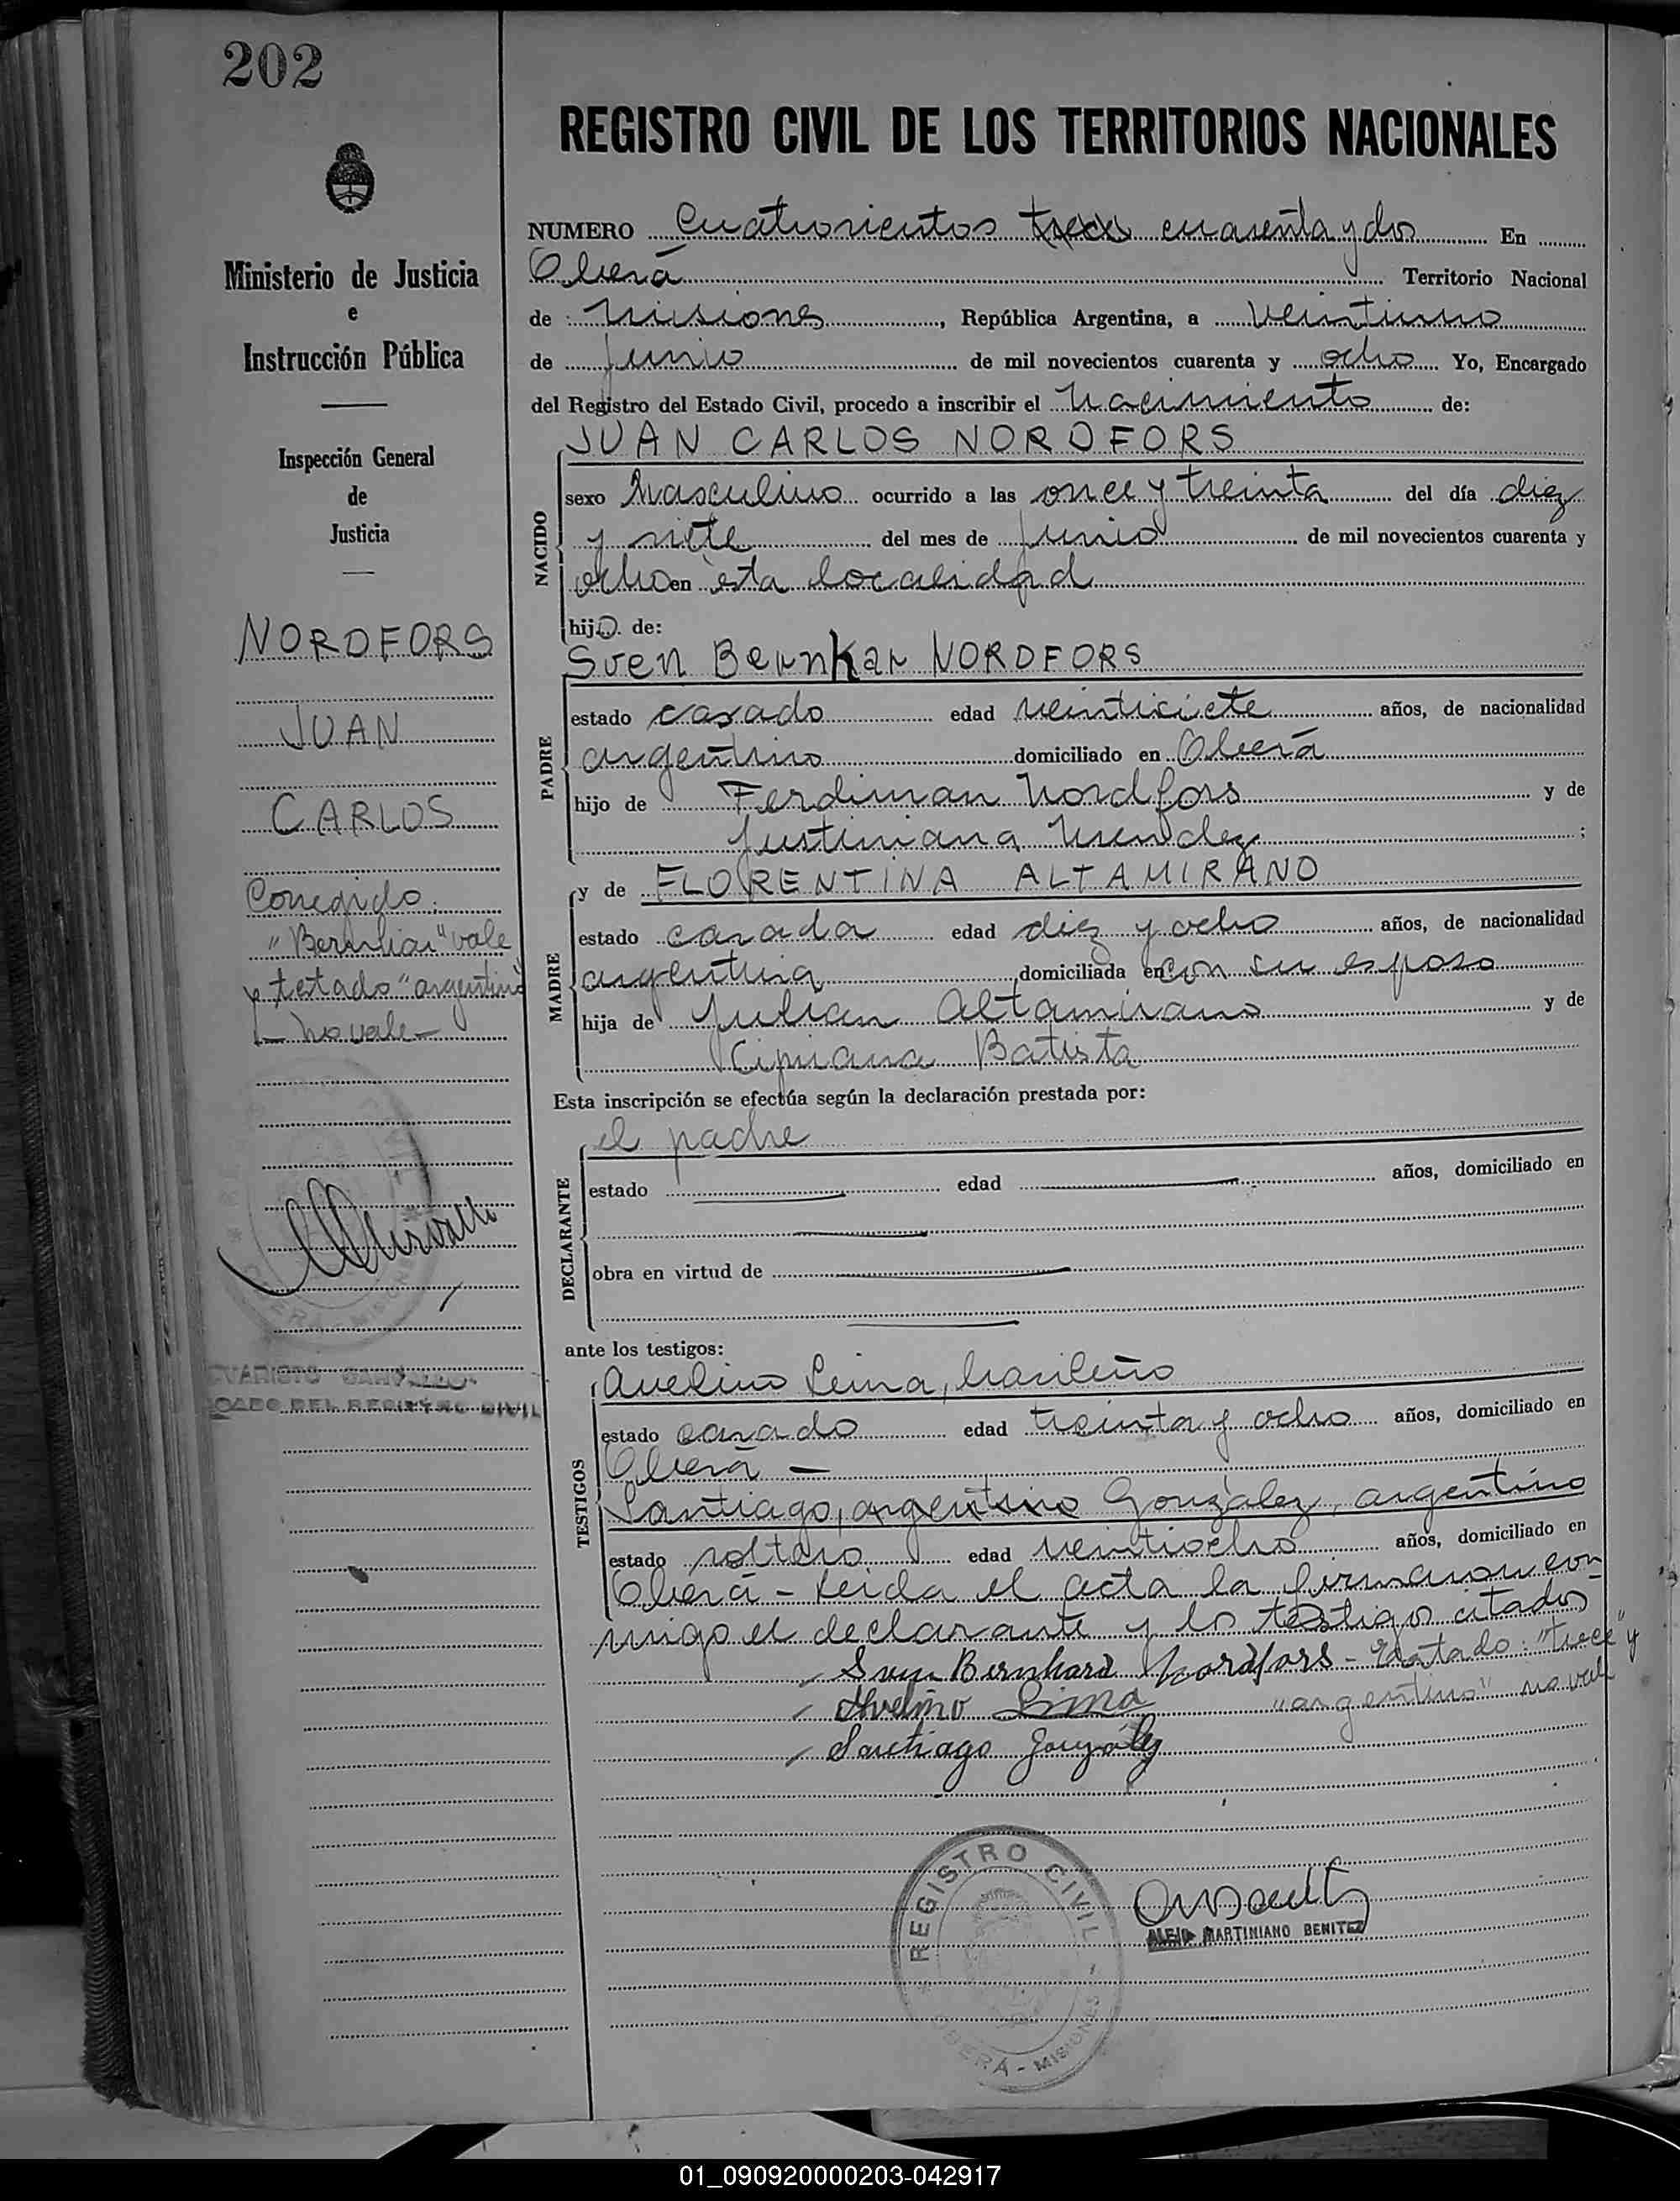 202
REGISTRO CIVIL DE LOS TERRITORIOS NACIONALES
Ministerio de Justicia
e
Instrucción Pública
Inspección General
de
Justicia
NORDFORS
JUAN
CARLOS
Corregido:
vale
y testado "argentino"
no vale-
CADO DEL REGISTRO CIVIL
NUMERO Cuatrocientos trece cuarenta y dos En
Oberá Territorio Nacional
de Misiones, República Argentina, a veintiuno
de junio de mil novecientos cuarenta y ocho Yo, Encargado
del Registro del Estado Civil, procedo a inscribir el nacimiento de:
JUAN CARLOS NORDFORS
NACIDO
sexo Masculino ocurrido a las once y treinta del día diez
y siete del mes de junio de mil novecientos cuarenta y
ocho en esta localidad
hijo de:
Sven Bernhar NORDFORS
PADRE
estado casado edad veinticiete años, de nacionalidad
argentino domiciliado en Oberá
hijo de Ferdinan Nordfors y de
Justiniana Mendez;
y de FLORENTINA ALTAMIRANO
MADRE
estado casada edad diez y ocho años, de nacionalidad
argentina domiciliada en con su esposo
hija de Julian Altamirano y de
Cipriana Batista
Esta inscripción se efectúa según la declaración prestada por:
el padre
DECLARANTE
estado edad años, domiciliado en
obra en virtud de
ante los testigos:
Avelino Leima, brasileño
TESTIGOS
estado casado edad treinta y ocho años, domiciliado en
Oberá -
Santiago, argentino González, argentino
estado soltero edad veintiocho años, domiciliado en
Oberá - Leida el acta la firmaron con-
migo el declarante y los testigos citados
Sven Bernhard Nordfors - Testado: "trece" y
Avelino Lima "argentino" no vale
Santiago González
REGISTRO CIVIL
OBERÁ - MISIONES
ALEJO MARTINIANO BENITEZ
01_090920000203-042917